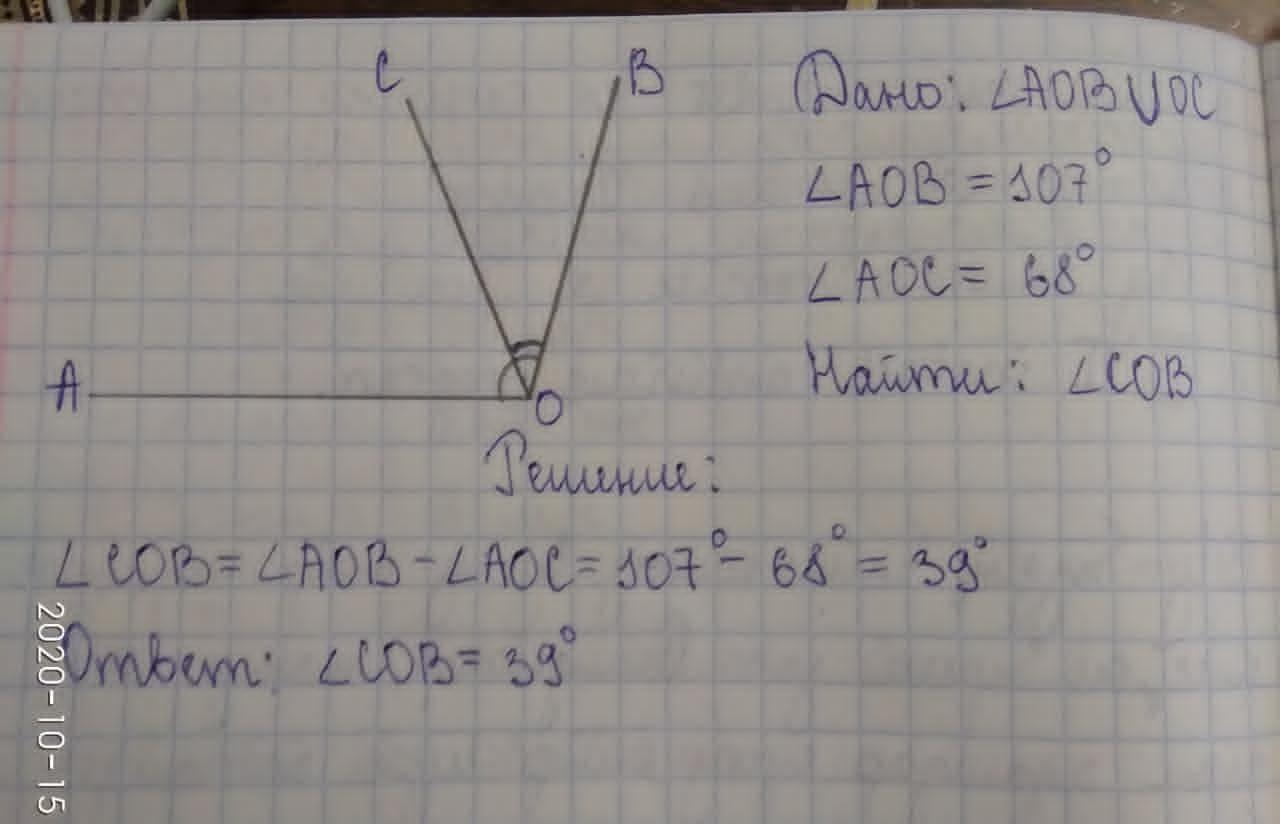 C
B
Дано: ∠AOB ∪ OC
∠AOB = 107°
∠AOC = 68°
Найти: ∠COB
A
O
Решение:
∠COB = ∠AOB - ∠AOC = 107° - 68° = 39°
Ответ: ∠COB = 39°
2020-10-15